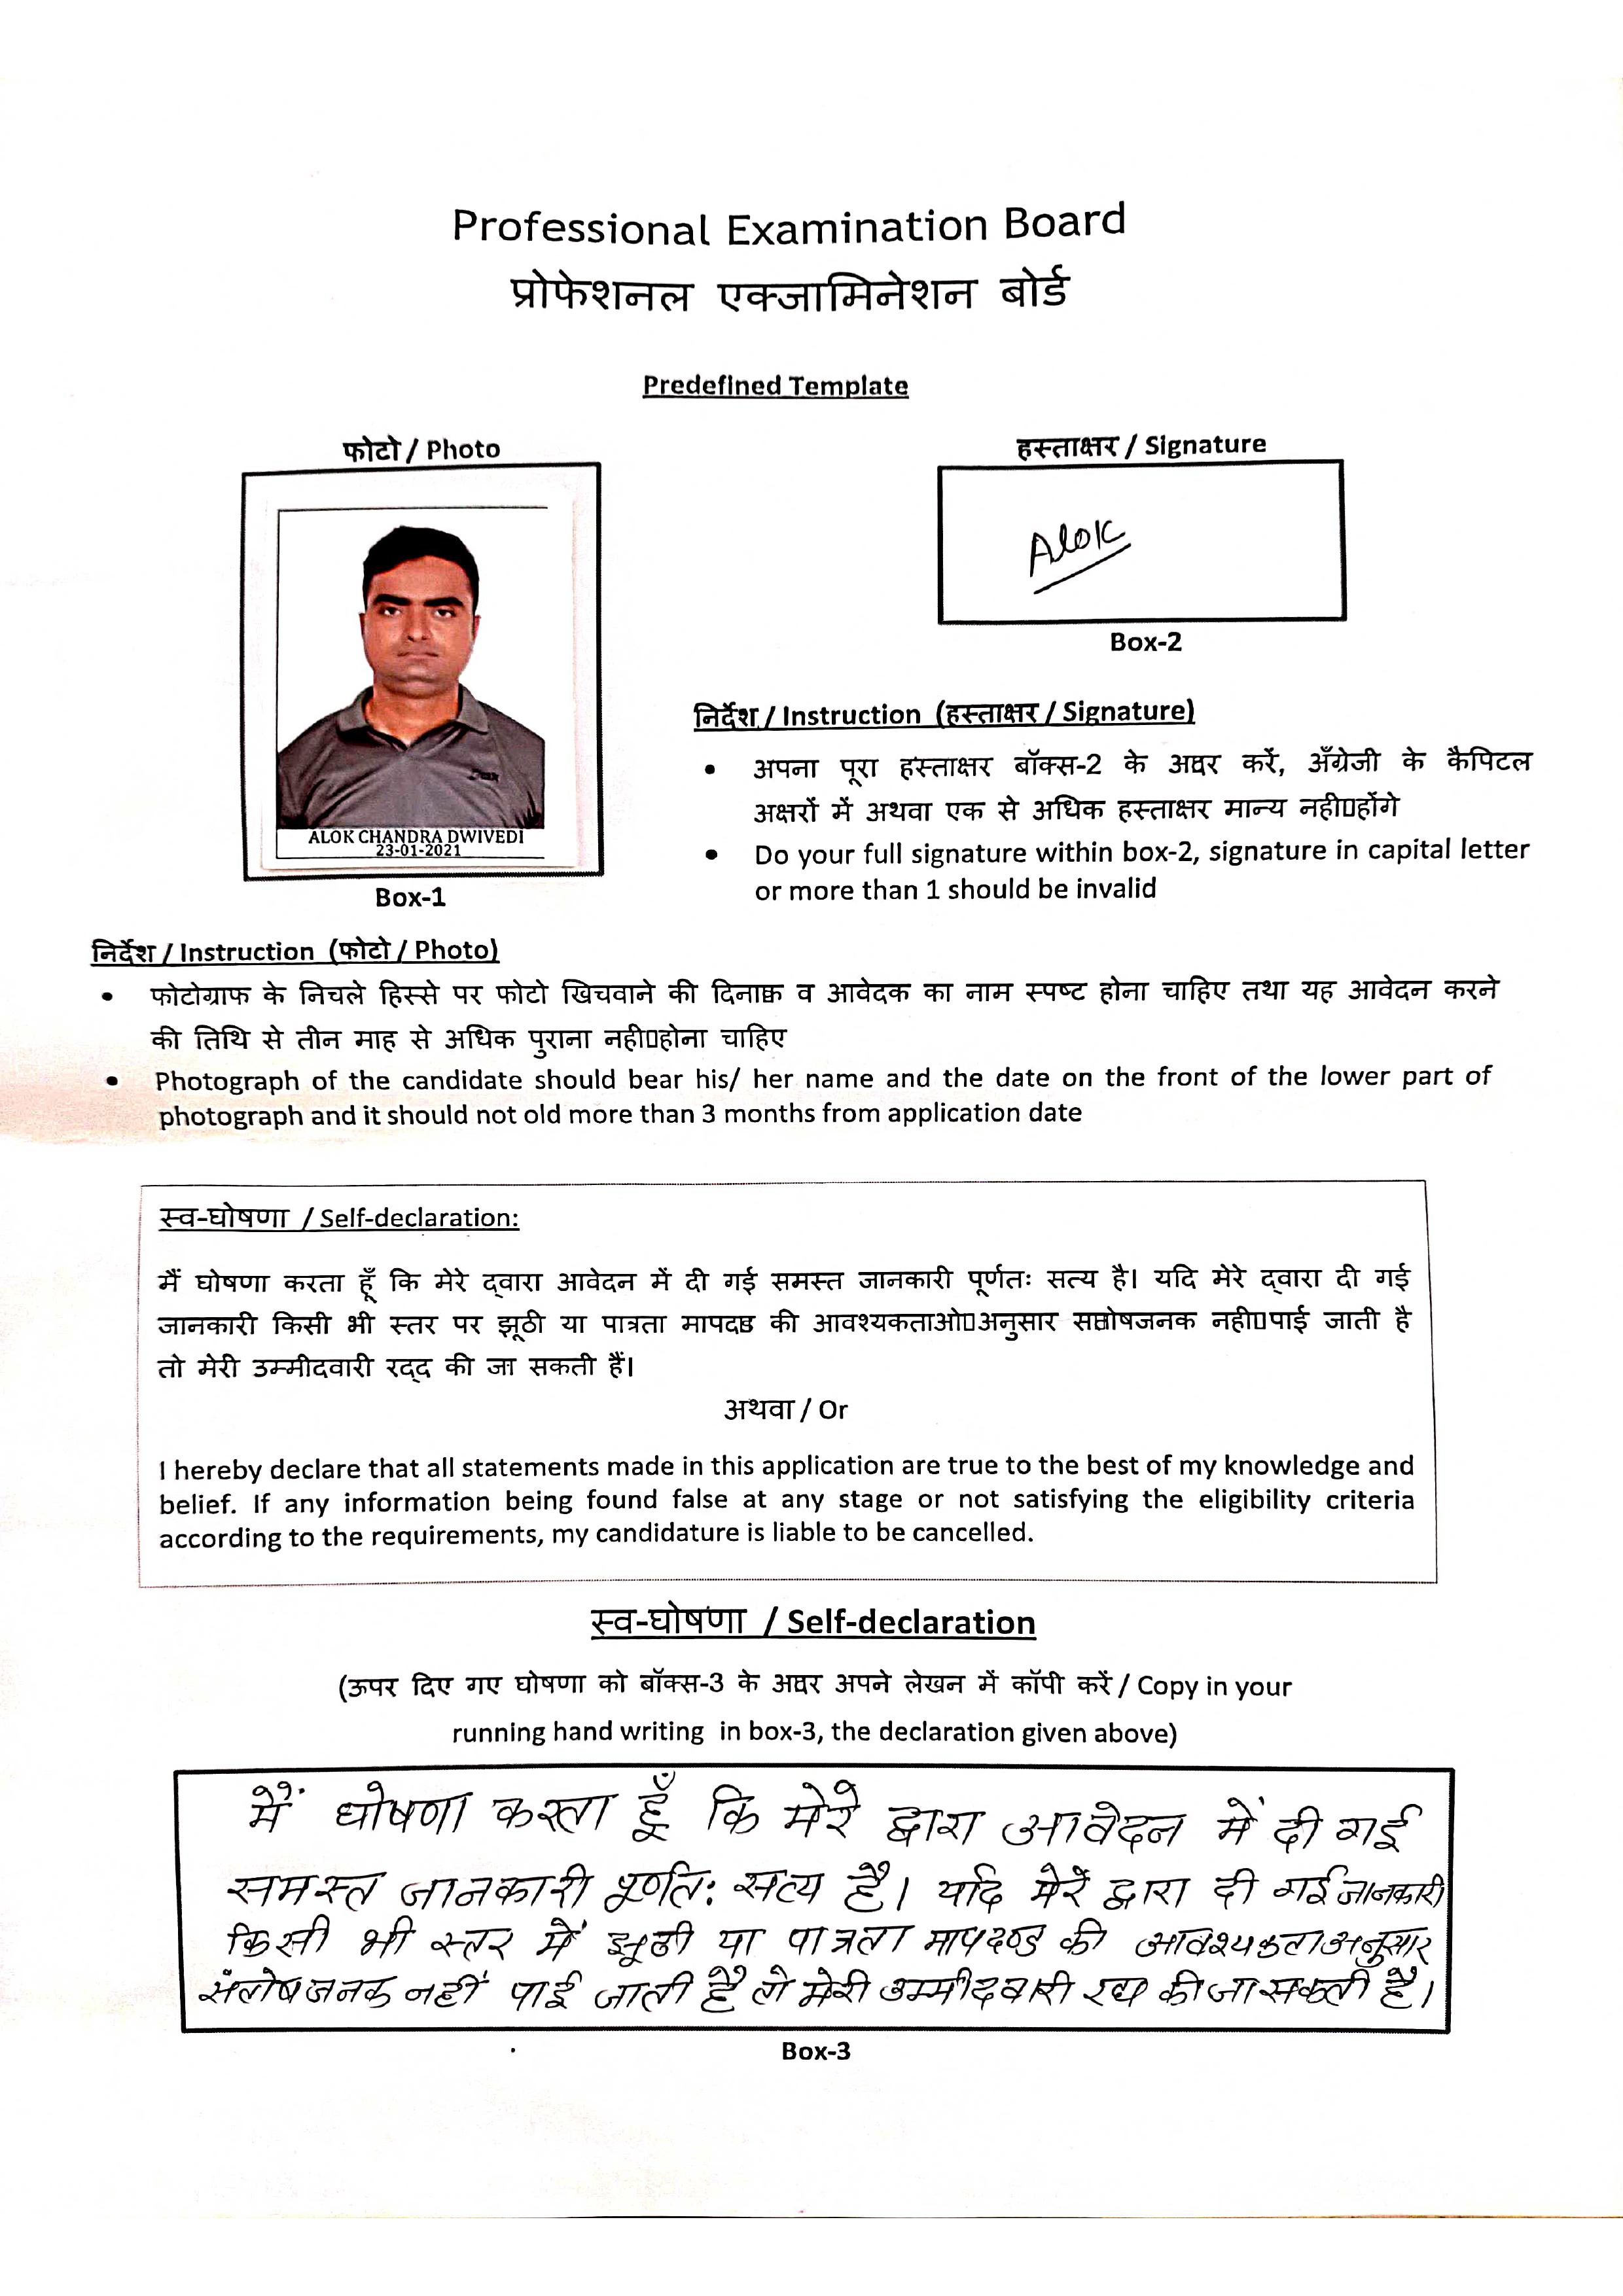 Professional Examination Board
प्रोफेशनल एक्जामिनेशन बोर्ड
Predefined Template
फोटो / Photo
हस्ताक्षर / Signature
Alok
Box-2
ALOK CHANDRA DWIVEDI
23-01-2021
Box-1
निर्देश / Instruction (हस्ताक्षर / Signature)
• अपना पूरा हस्ताक्षर बॉक्स-2 के करें, अँग्रेजी के कैपिटल
अक्षरों में अथवा एक से अधिक हस्ताक्षर मान्य नही▯होंगे
• Do your full signature within box-2, signature in capital letter
or more than 1 should be invalid
निर्देश / Instruction (फोटो / Photo)
• फोटोग्राफ के निचले हिस्से पर फोटो खिचवाने की व आवेदक का नाम स्पष्ट होना चाहिए तथा यह आवेदन करने
की तिथि से तीन माह से अधिक पुराना नही▯होना चाहिए
• Photograph of the candidate should bear his/ her name and the date on the front of the lower part of
photograph and it should not old more than 3 months from application date
स्व-घोषणा / Self-declaration:
मैं घोषणा करता हूँ कि मेरे द्वारा आवेदन में दी गई समस्त जानकारी पूर्णतः सत्य है। यदि मेरे द्वारा दी गई
जानकारी किसी भी स्तर पर झूठी या पात्रता की आवश्यकताओ▯अनुसार नही▯पाई जाती है
तो मेरी उम्मीदवारी रद्द की जा सकती हैं।
अथवा / Or
I hereby declare that all statements made in this application are true to the best of my knowledge and
belief. If any information being found false at any stage or not satisfying the eligibility criteria
according to the requirements, my candidature is liable to be cancelled.
स्व-घोषणा / Self-declaration
(ऊपर दिए गए घोषणा को बॉक्स-3 के अपने लेखन में कॉपी करें / Copy in your
running hand writing in box-3, the declaration given above)
मैं घोषणा करता हूँ कि मेरे द्वारा आवेदन में दी गई
समस्त जानकारी पूर्णतः सत्य है। यदि मेरें द्वारा दी गई जानकारी
किसी भी स्तर में झूठी या पात्रता मापदण्ड की आवश्यकता अनुसार
संतोषजनक नहीं पाई जाती है तो मेरी उम्मीदवारी रद्द की जा सकती है।
Box-3